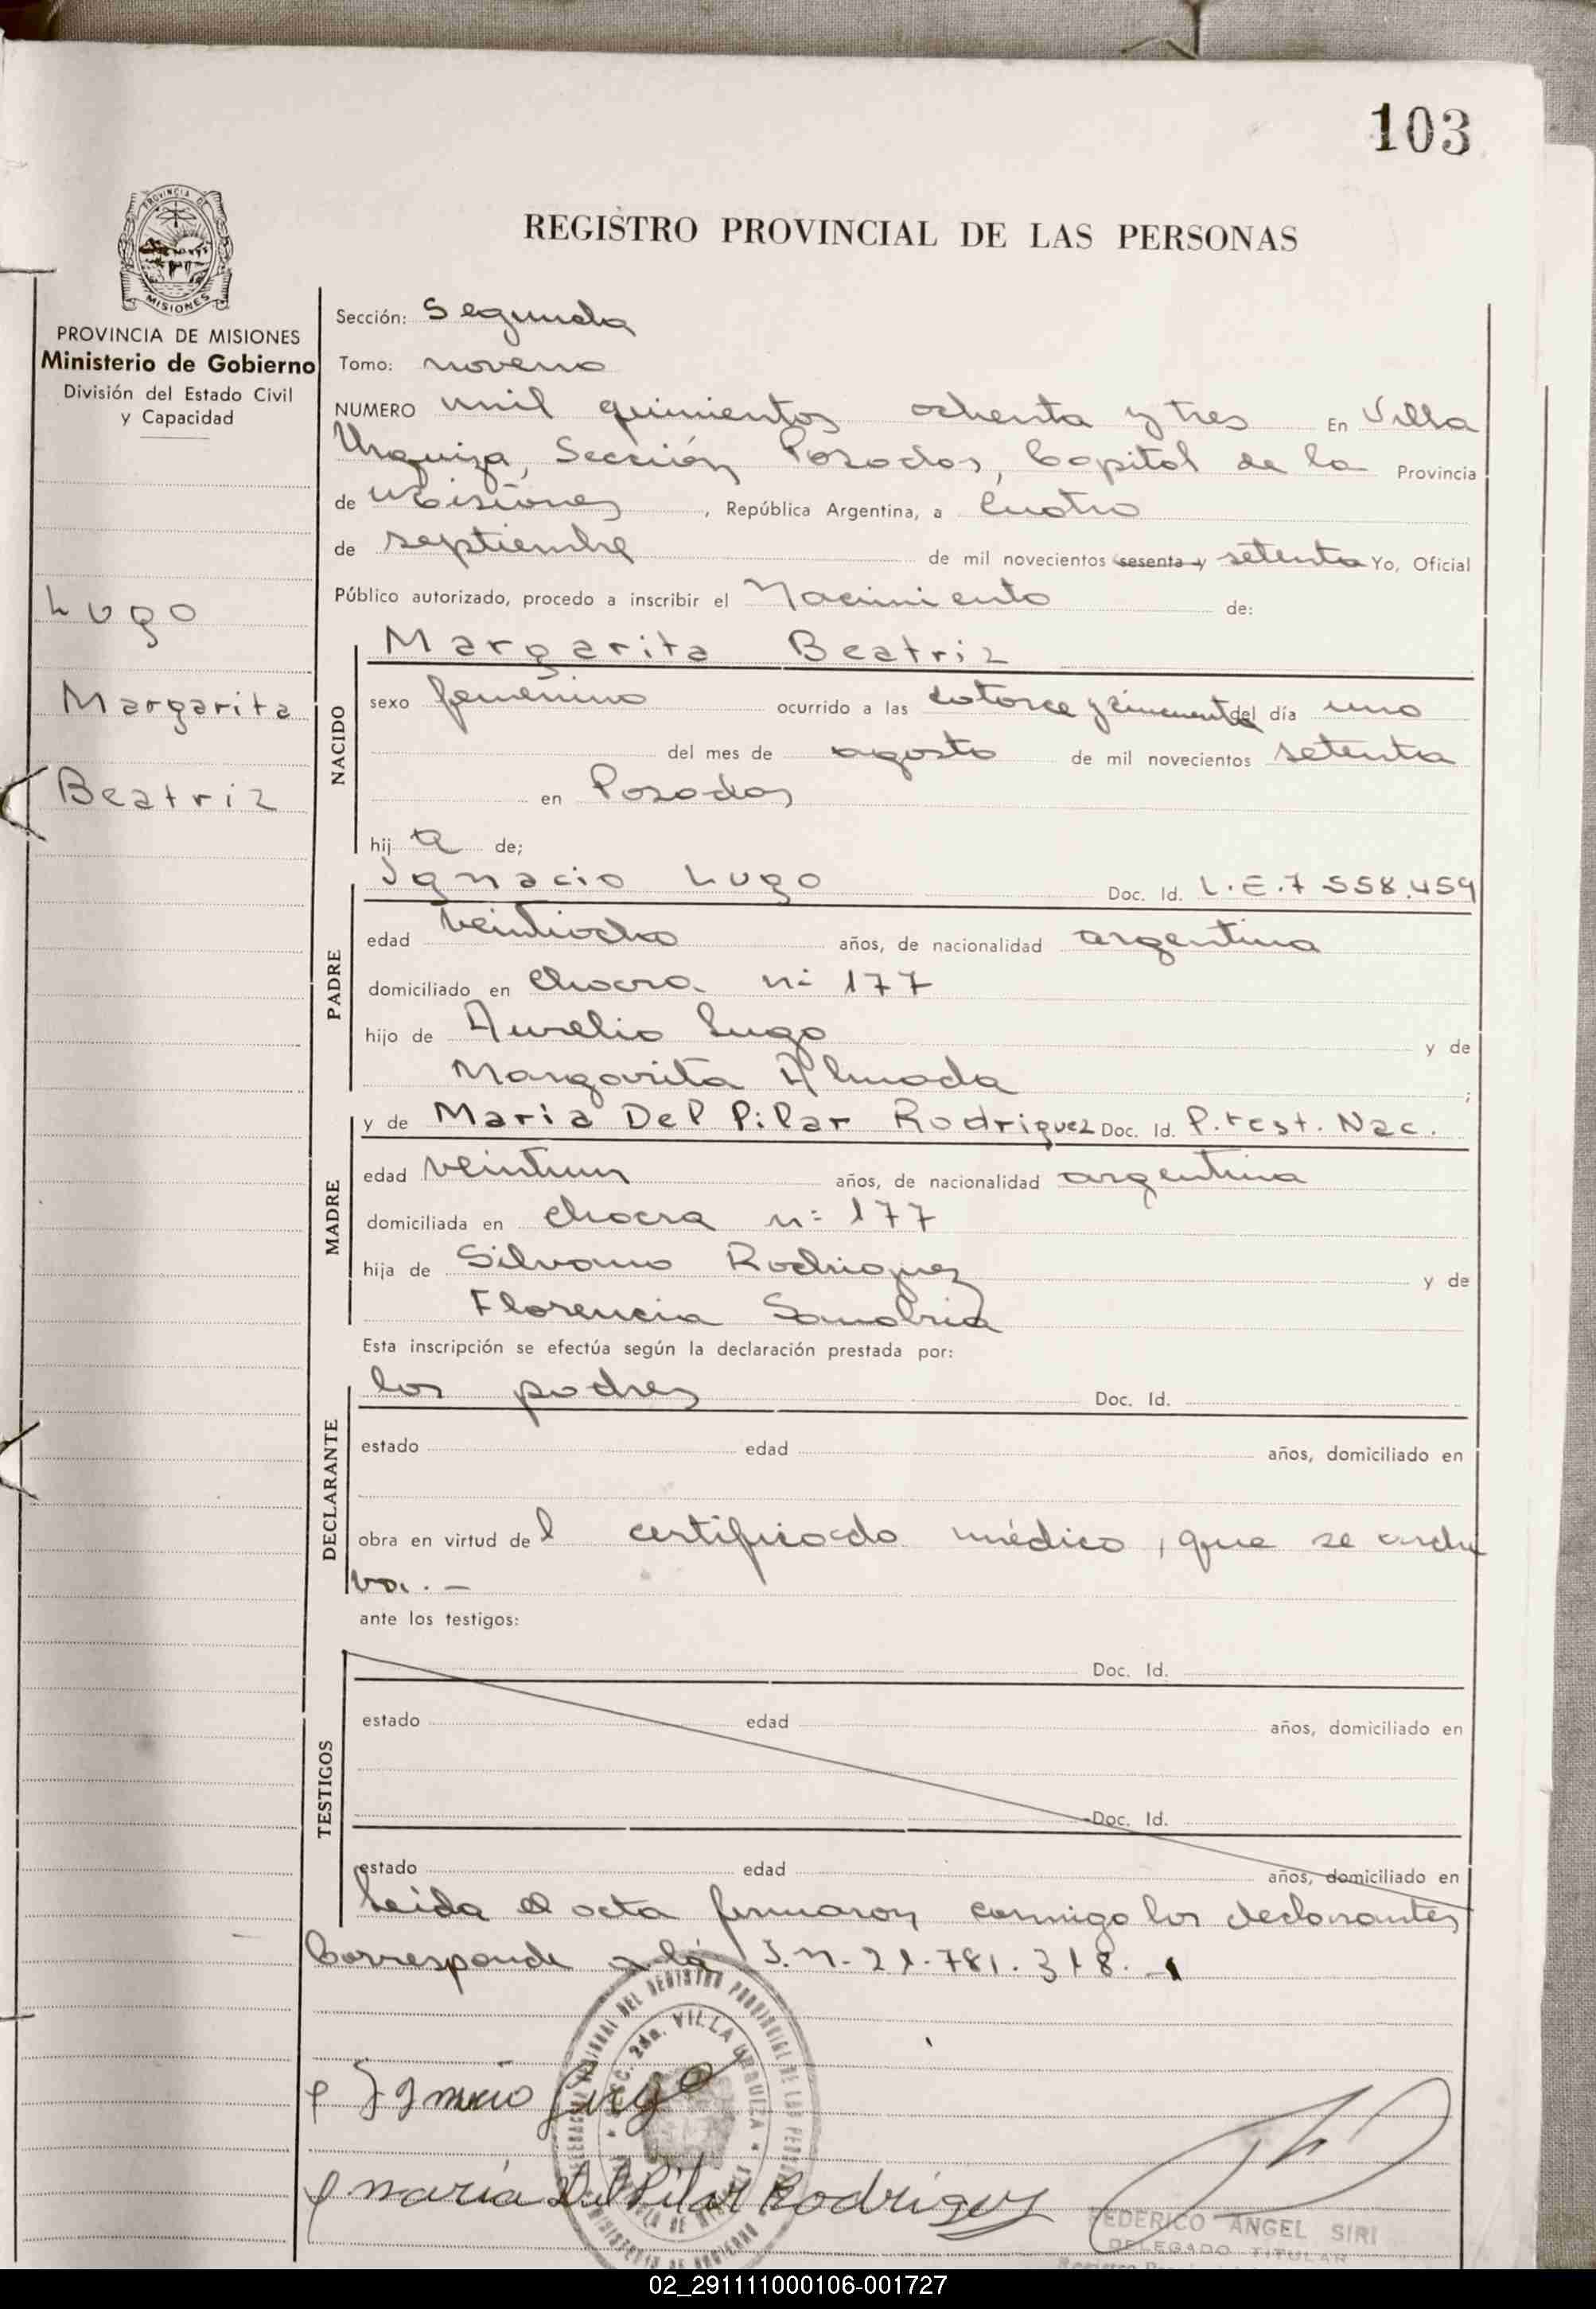 103
REGISTRO PROVINCIAL DE LAS PERSONAS
PROVINCIA DE
MISIONES
PROVINCIA DE MISIONES
Ministerio de Gobierno
División del Estado Civil
y Capacidad
Lugo
Margarita
Beatriz
Sección: Segunda
Tomo: noveno
NUMERO mil quinientos ochenta y tres En Villa
Urquiza, Sección Posadas, Capital de la Provincia
de Misiones, República Argentina, a Cuatro
de septiembre de mil novecientos sesenta y setenta Yo, Oficial
Público autorizado, procedo a inscribir el Nacimiento de:
NACIDO
Margarita Beatriz
sexo femenino ocurrido a las catorce y cincuenta del día uno
del mes de agosto de mil novecientos setenta
en Posadas
hij a de;
PADRE
Ignacio Lugo Doc. Id. L.E.7 558.459
edad veintiocho años, de nacionalidad argentina
domiciliado en chacra nº 177
hijo de Aurelio Lugo y de
Margarita Almada ;
MADRE
y de Maria Del Pilar Rodriguez Doc. Id. P.rest. Nac.
edad veintiun años, de nacionalidad argentina
domiciliada en chacra nº 177
hija de Silvano Rodriguez y de
Florencia Sanabria
Esta inscripción se efectúa según la declaración prestada por:
DECLARANTE
los padres Doc. Id.
estado edad años, domiciliado en
obra en virtud del certificado médico, que se archi
va. -
ante los testigos:
TESTIGOS
Doc. Id.
estado edad años, domiciliado en
Doc. Id.
estado edad años, domiciliado en
Leida el acta firmaron conmigo los declarantes
Corresponde a la I.n. 21.781.318.-
Ignacio Lugo
SECC. 2da. VILLA URQUIZA
maría Del Pilar Rodríguez
FEDERICO ANGEL SIRI
DELEGADO TITULAR
02_291111000106-001727